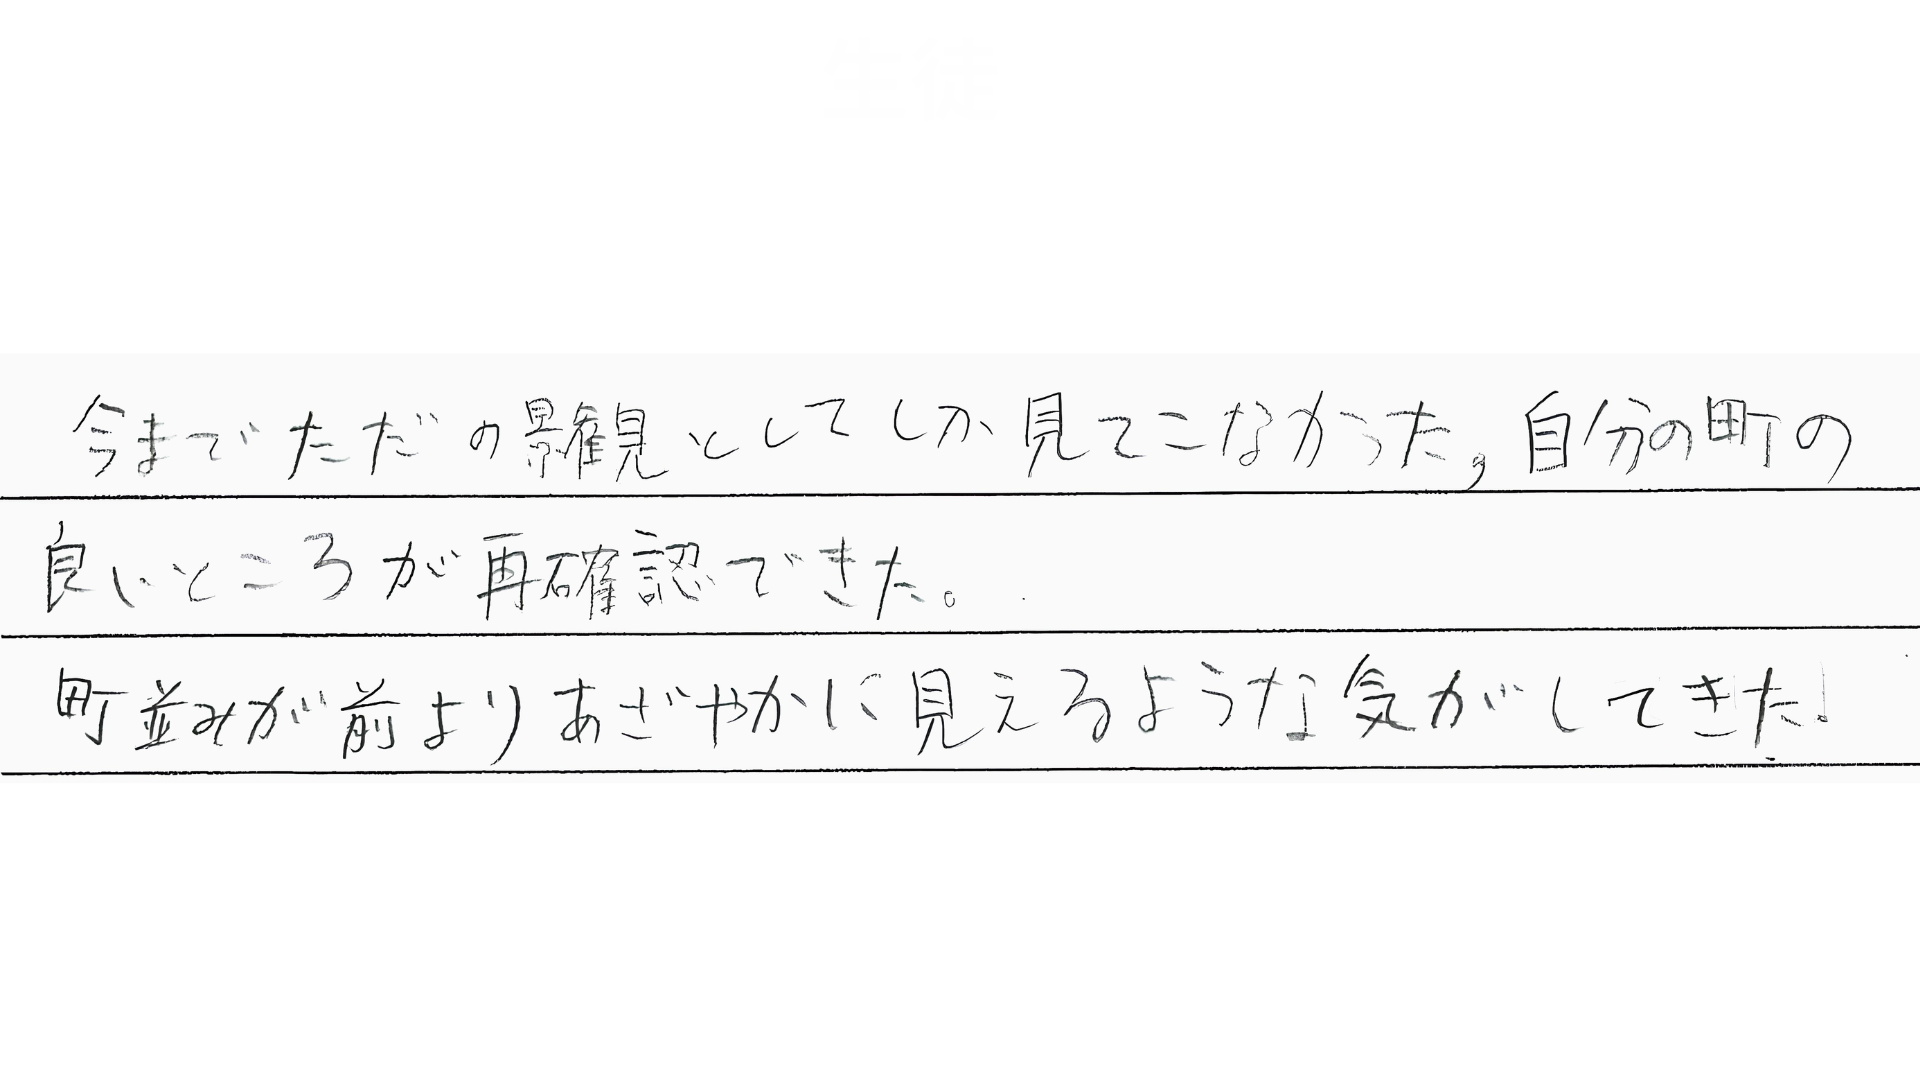 今までただの景観としてしか見てこなかった,自分の町の
良いところが再確認できた。
町並みが前よりあざやかに見えるような気がしてきた!